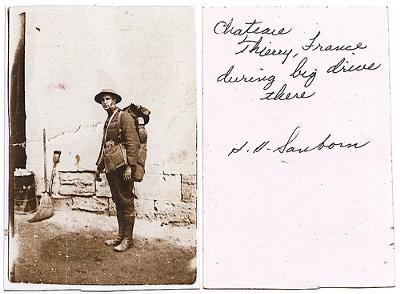 Chateau
Thierry, France
during big drive
there
S. H. Sanborn